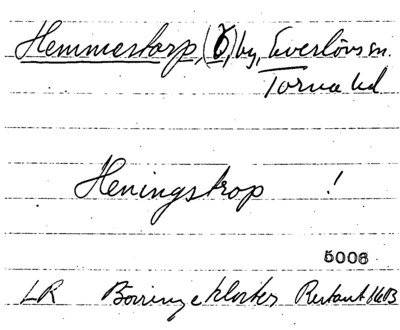 Hemmestorp, (Ö) by, Everlövs sn.
Torna hd
Heningstrop !
5006
LR Börringe kloster Restant